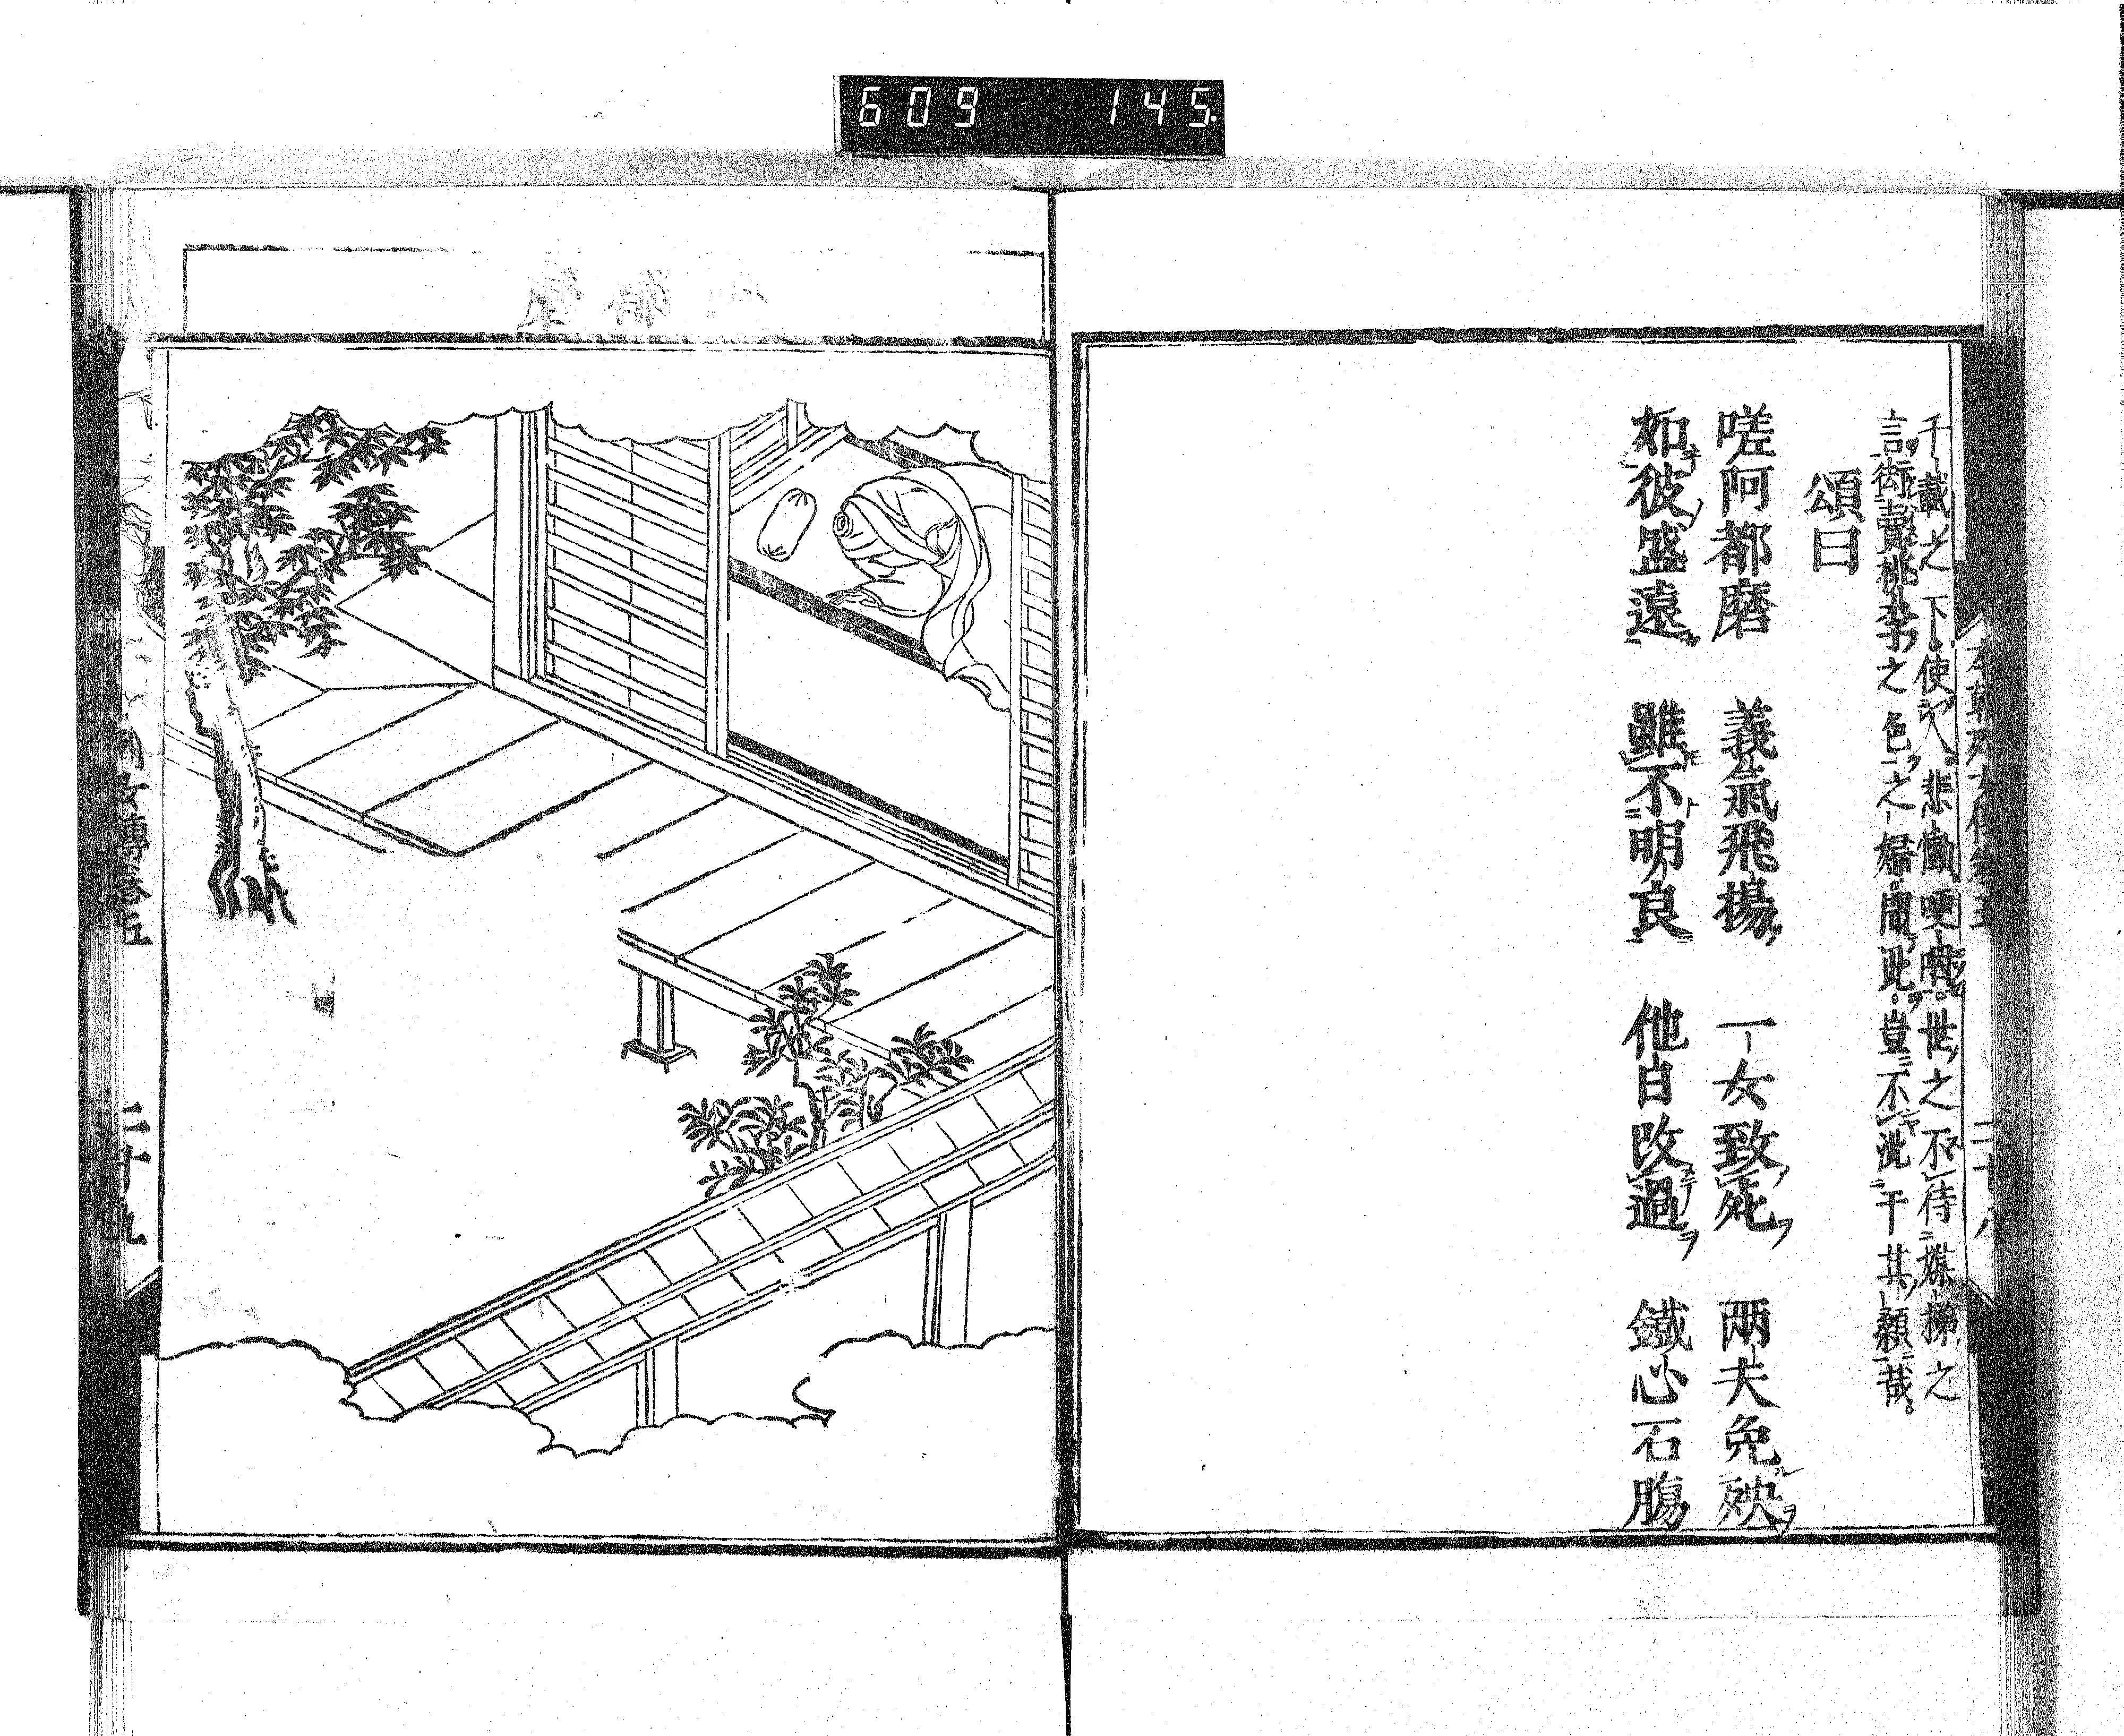 609 145
千載之下使人悲慟哽嘅世之不待媒掾之
言衒賣桃李之色之婦聞此豈不泚于其顙哉
頌曰
嗟阿都磨 義氣飛揚 一女致死 兩夫免殃
如彼盛遠 雖不明良 他日改過 鐵心石腸
本朝列女傳卷五 二十八
列女傳卷五 二十九